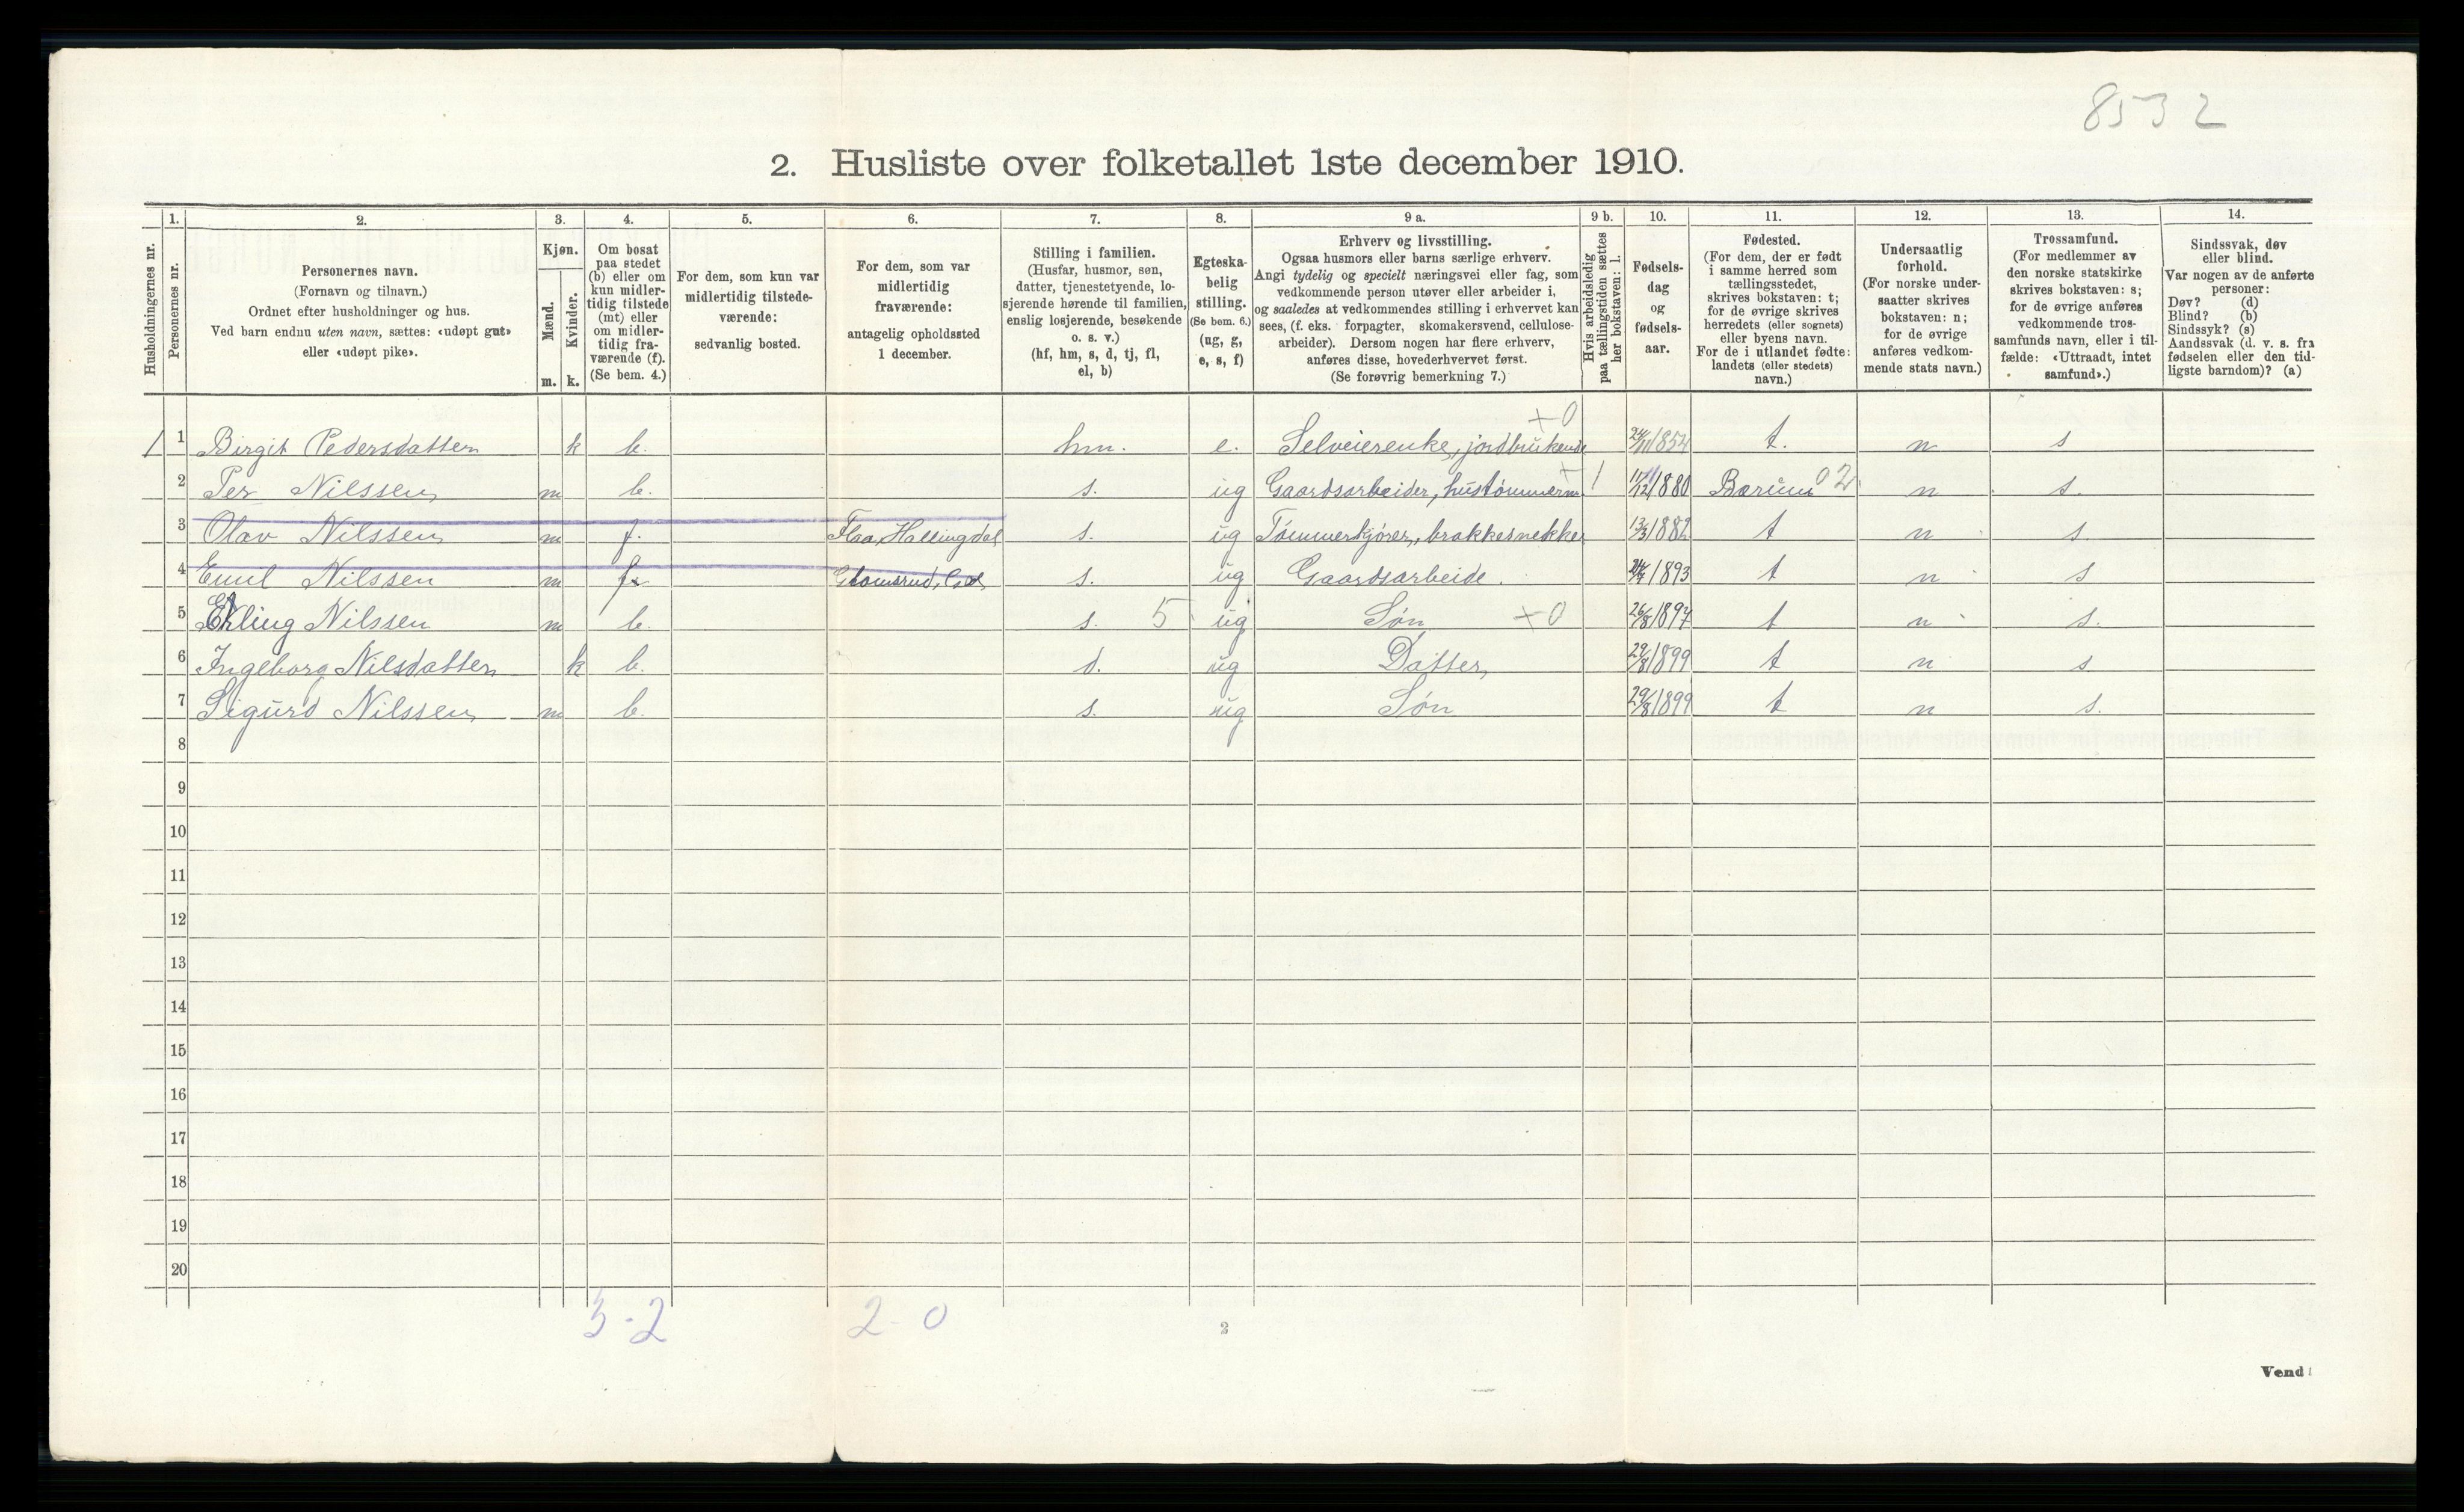 8532
2. Husliste over folketallet 1ste december 1910.
Husholdningernes nr.
1.
Personernes nr.
2.
Personernes navn.
(Fornavn og tilnavn.)
Ordnet efter husholdninger og hus.
Ved barn endnu uten navn, sættes: «udøpt gut»
eller «udøpt pike».
3.
Kjøn.
Mænd.
Kvinder.
m. k.
4.
Om bosat
paa stedet
(b) eller om
kun midler-
tidig tilstede
(mt) eller
om midler-
tidig fra-
værende (f).
(Se bem. 4.)
5.
For dem, som kun var
midlertidig tilstede-
værende:
sedvanlig bosted.
6.
For dem, som var
midlertidig
fraværende:
antagelig opholdssted
1 december.
7.
Stilling i familien.
(Husfar, husmor, søn,
datter, tjenestetyende, lo-
sjerende hørende til familien,
enslig losjerende, besøkende
o. s. v.)
(hf, hm, s, d, tj, fl,
el, b)
8.
Egteska-
belig
stilling.
(Se bem. 6.)
(ug, g,
e, s, f)
9 a.
Erhverv og livsstilling.
Ogsaa husmors eller barns særlige erhverv.
Angi tydelig og specielt næringsvei eller fag, som
vedkommende person utøver eller arbeider i,
og saaledes at vedkommendes stilling i erhvervet kan
sees, (f. eks. forpagter, skomakersvend, cellulose-
arbeider). Dersom nogen har flere erhverv,
anføres disse, hovederhvervet først.
(Se forøvrig bemerkning 7.)
9 b.
Hvis arbeidsledig
paa tællingstiden sættes
her bokstaven: l.
10.
Fødsels-
dag
og
fødsels-
aar.
11.
Fødested.
(For dem, der er født
i samme herred som
tællingsstedet,
skrives bokstaven: t;
for de øvrige skrives
herredets (eller sognets)
eller byens navn.
For de i utlandet fødte:
landets (eller stedets)
navn.)
12.
Undersaatlig
forhold.
(For norske under-
saatter skrives
bokstaven: n;
for de øvrige
anføres vedkom-
mende stats navn.)
13.
Trossamfund.
(For medlemmer av
den norske statskirke
skrives bokstaven: s;
for de øvrige anføres
vedkommende tros-
samfunds navn, eller i til-
fælde: «Uttraadt, intet
samfund».)
14.
Sindssvak, døv
eller blind.
Var nogen av de anførte
personer:
Døv? (d)
Blind? (b)
Sindssyk? (s)
Aandssvak (d. v. s. fra
fødselen eller den tid-
ligste barndom)? (a)
+0
1 1 Birgit Pedersdatter k b. hm. e. Selveierenke, jordbrukende 24/11 1854 t. n s
2 Per Nilssen m b. s. ug Gaardsarbeider, hustømmerm. + l 11/12 1880 Bærum 02 n s.
3 Olav Nilssen m f. Flaa, Hallingdal s. ug Tømmerkjører, brakkesnekker 13/3 1882 t n s.
4 Emil Nilssen m f. Glomsrud, s. ug Gaardsarbeide. 1893 t n s
5 Erling Nilssen m b. s. 5 ug Søn +0 26/8 1897 t n s.
6 Ingeborg Nilsdatter k b. d. ug Datter 29/8 1899 t n s
7 Sigurd Nilssen m b. s. ug Søn 29/8 1899 t n s.
8
9
10
11
12
13
14
15
16
17
18
19
20
5-2 2-0
2
Vend!